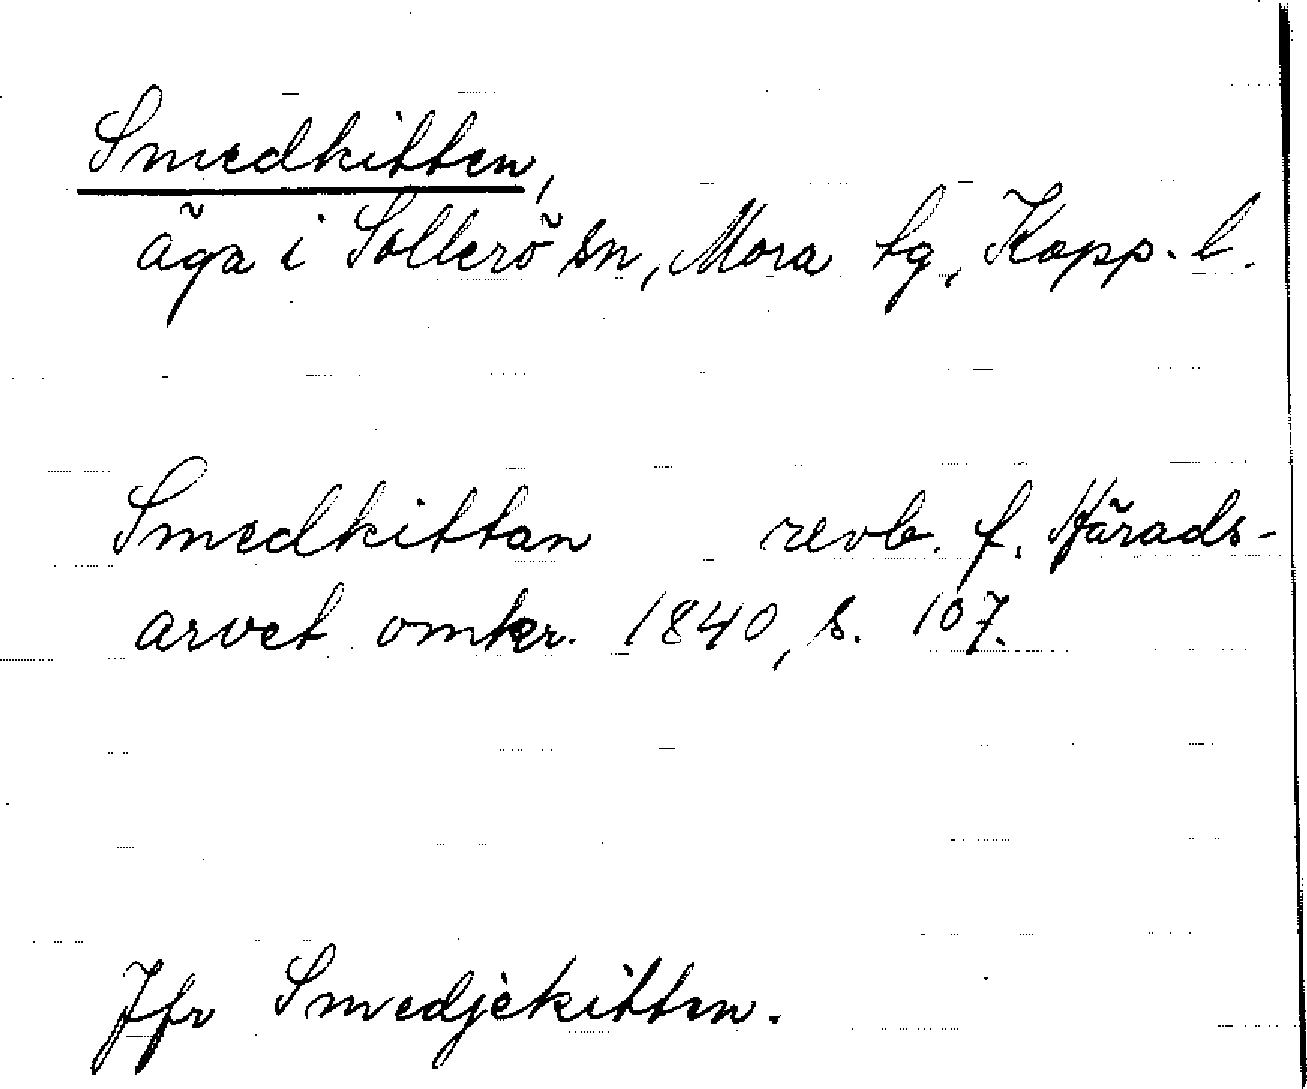 Smedkitten,
äga i Sollerö sn, Mora tg, Kopp. l.
Smedkittan revb. f. Härads-
arvet omkr. 1840, s. 107.
Jfr Smedjekitten.